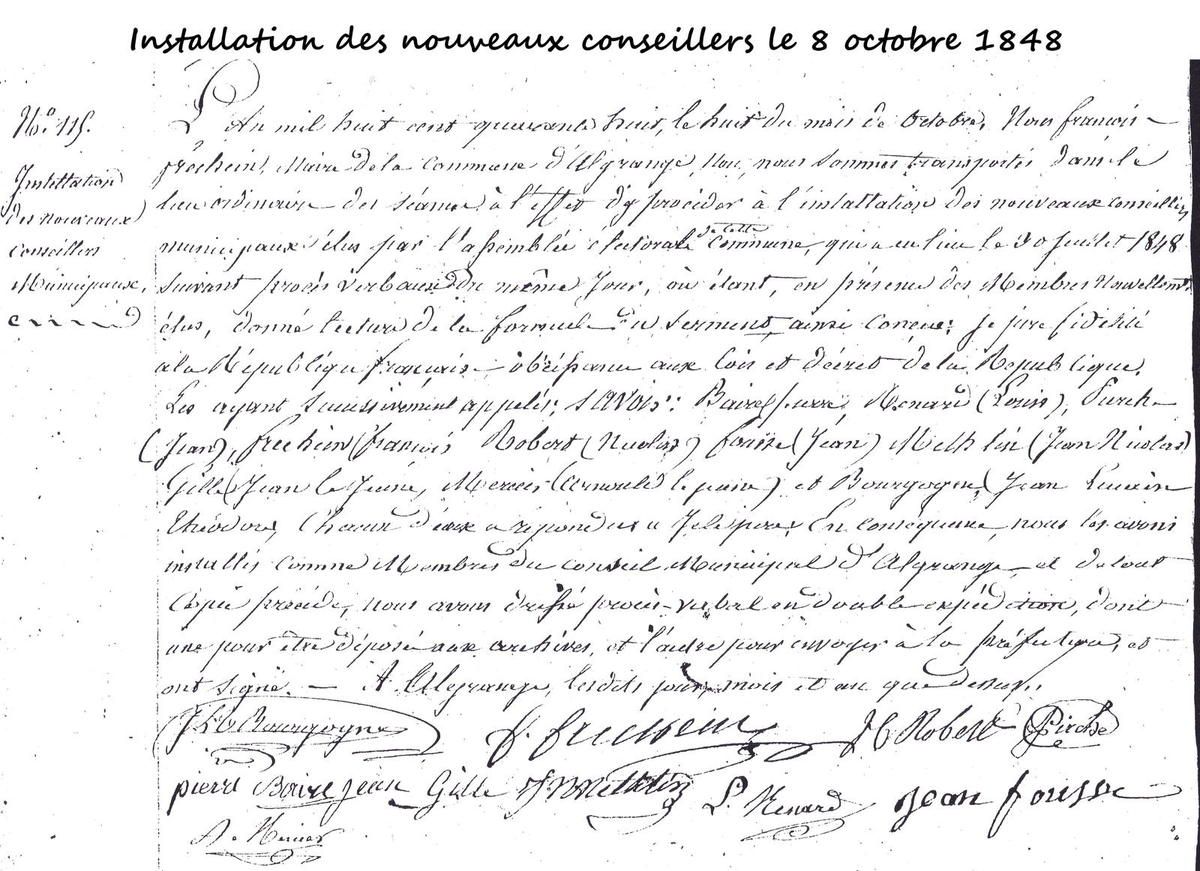 Installation des nouveaux conseillers le 8 octobre 1848
No. 115.
Installation
des nouveaux
conseillers
Municipaux,
L'An mil huit cent quarante huit, le huit du mois de Octobre, Nous françois
frechein, Maire de la Commune d'Algrange, nous sommes transportés dans le
lieu ordinaire des séances à l'effet d'y procéder à l'installation des nouveaux conseillers
municipaux élus par l'assemblée électorale de cette Commune, qui a eu lieu le 30 Juillet 1848
suivant procès verbaux du même Jour, où étant, en présence des Membres Nouvellement
élus, donné lecture de la formule du serment, ainsi conçue: Je jure fidélité
à la République française obéissance aux lois et décret de la République.
Les ayant successivement appelés, savoir: Baire pierre, Renard (Louis),
(Jean), frechein (françois Robert (Nicolas) fousse (Jean) Methlin (Jean Nicolas)
Gille (Jean le Jeune, Mercier le jeune) et Bourgogne (Jean
théodore, Chacun d'eux a répondu Je le jure, En conséquence, nous les avons
installés comme Membres du conseil Municipal d'Algrange, et de tout
procède, nous avons dressé procès-verbal en double expédition, dont
une pour être déposé aux archives, et l'autre pour envoyer à la préfecture, et
ont signé. — A Algrange, lesdits jour, mois et an que dessus.
Bourgogne f. frechein Robert Pirche
pierre Baire Jean Gille Methlin L. Renard Jean fousse